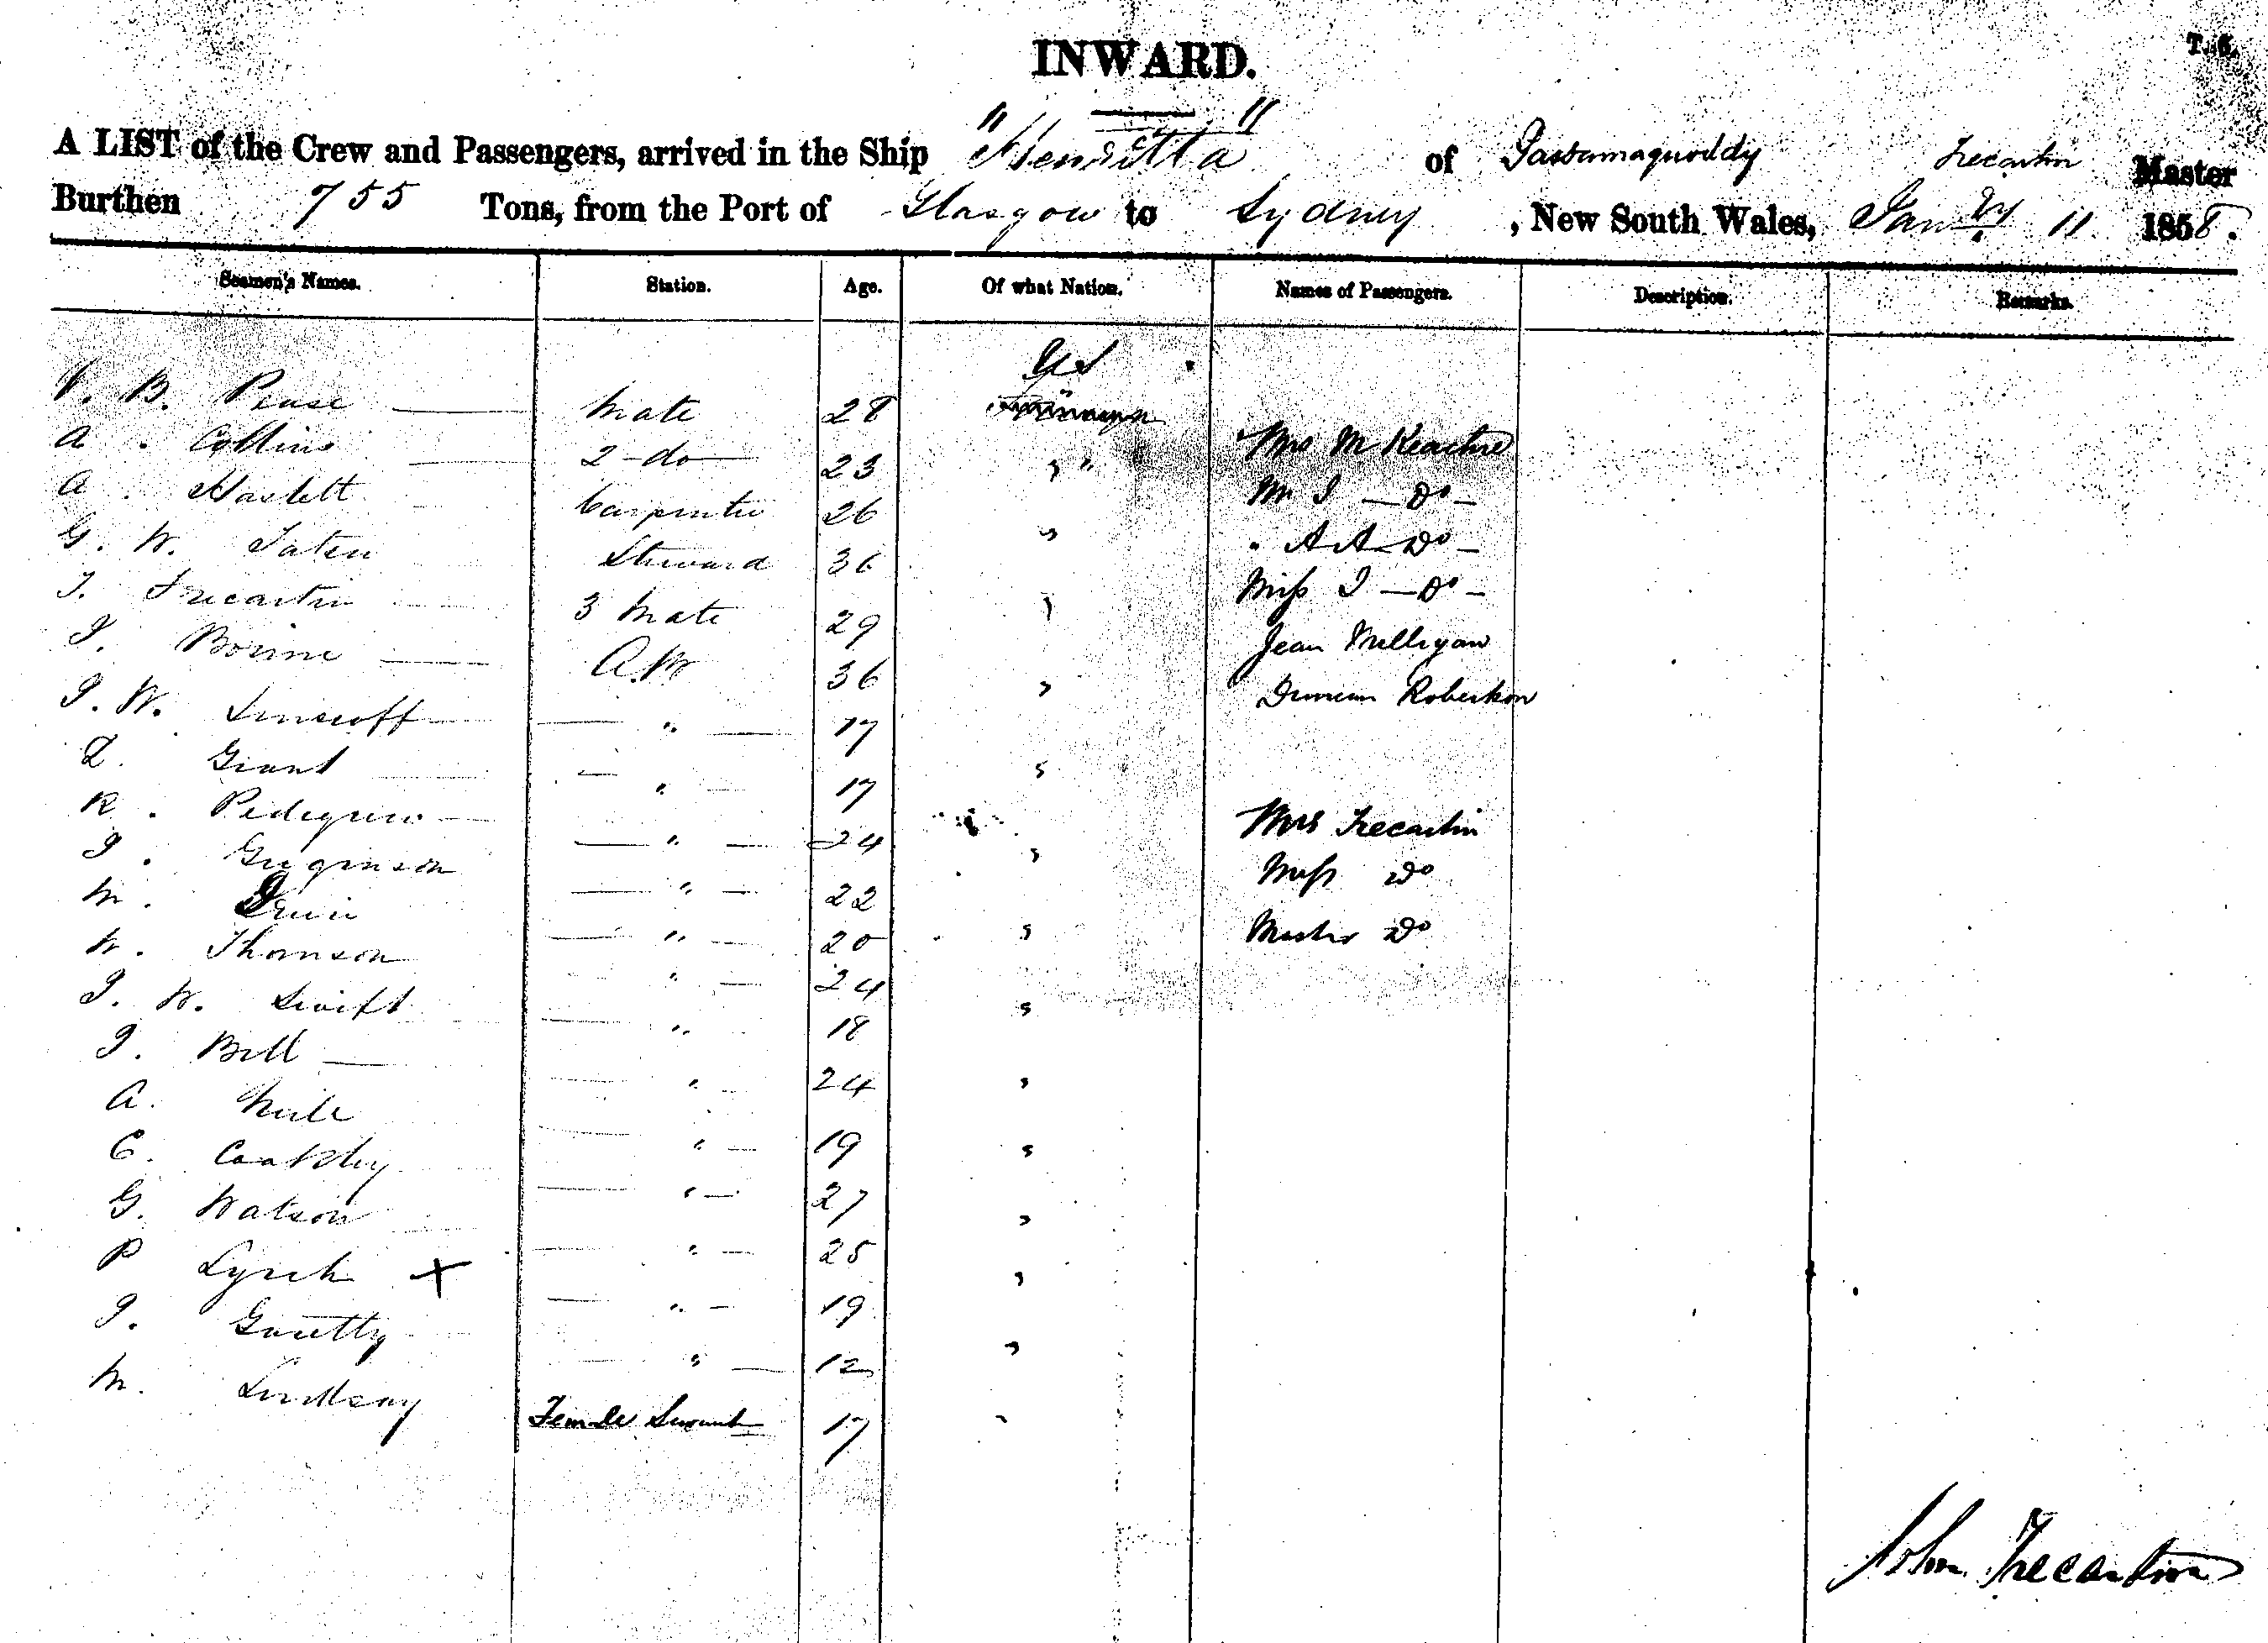 INWARD.
T. 6.
A LIST of the Crew and Passengers, arrived in the Ship "Henrietta" of Passamaquoddy Trecartin Master
Burthen 755 Tons, from the Port of Glasgow to Sydney, New South Wales, Jany. 11 1858.
Seamen's Names. Station. Age. Of what Nation. Names of Passengers. Description. Remarks.
B. Pease Mate 28
A. Collins 2 do 23 " Mrs McKeachie
A. Haslett Carpenter 26 " Mr J Do
G. W. Steward 36 " A A Do
J. Trecartin 3 Mate 29 " Miss J Do
J. 36 " Jean Milligan
J. W. Linscott " 17 " Duncan Robertson
Grant " 17 "
R. " 24 " Mrs Trecartin
J. " 22 " Miss Do
M. " 20 " Master Do
W. Thomson " 24 "
J. W. Swift " 18 "
J. Bell " 24 "
A. " 19 "
C. " 27 "
G. Watson " 25 "
P Lynch X " 19 "
J. " 12 "
M. Lindsay Female Servant 17 "
John Trecartin